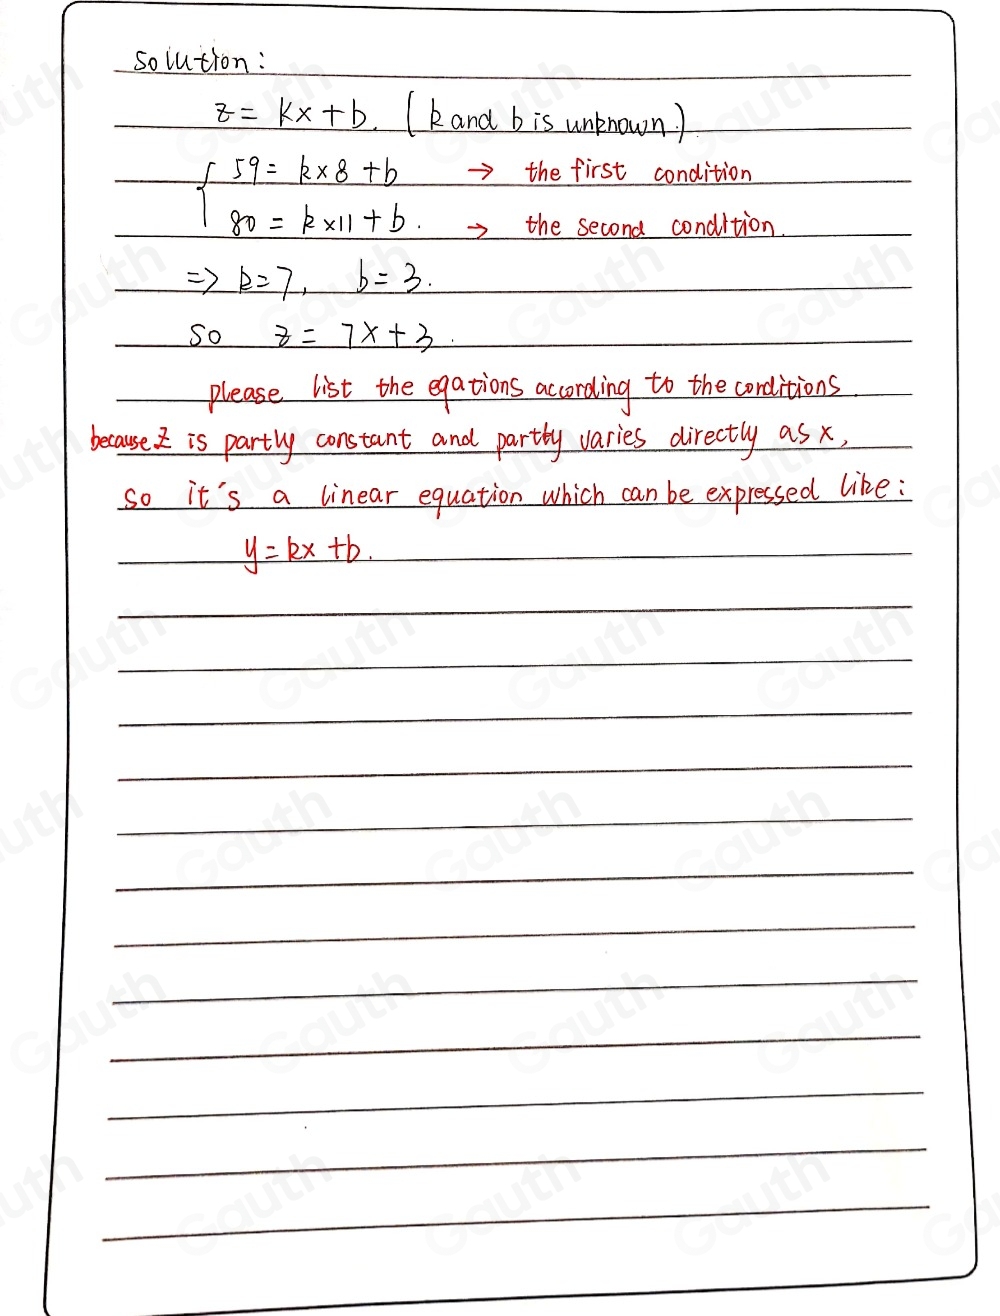 Solution:
z = kx + b. (k and b is unknown.)
59 = k×8 + b → the first condition
80 = k×11 + b. → the second condition.
=> k=7, b=3.
So z = 7x+3.
please list the eqations according to the conditions.
because z is partly constant and partly varies directly as x,
so it's a linear equation which can be expressed like:
y = kx + b.
Gauth